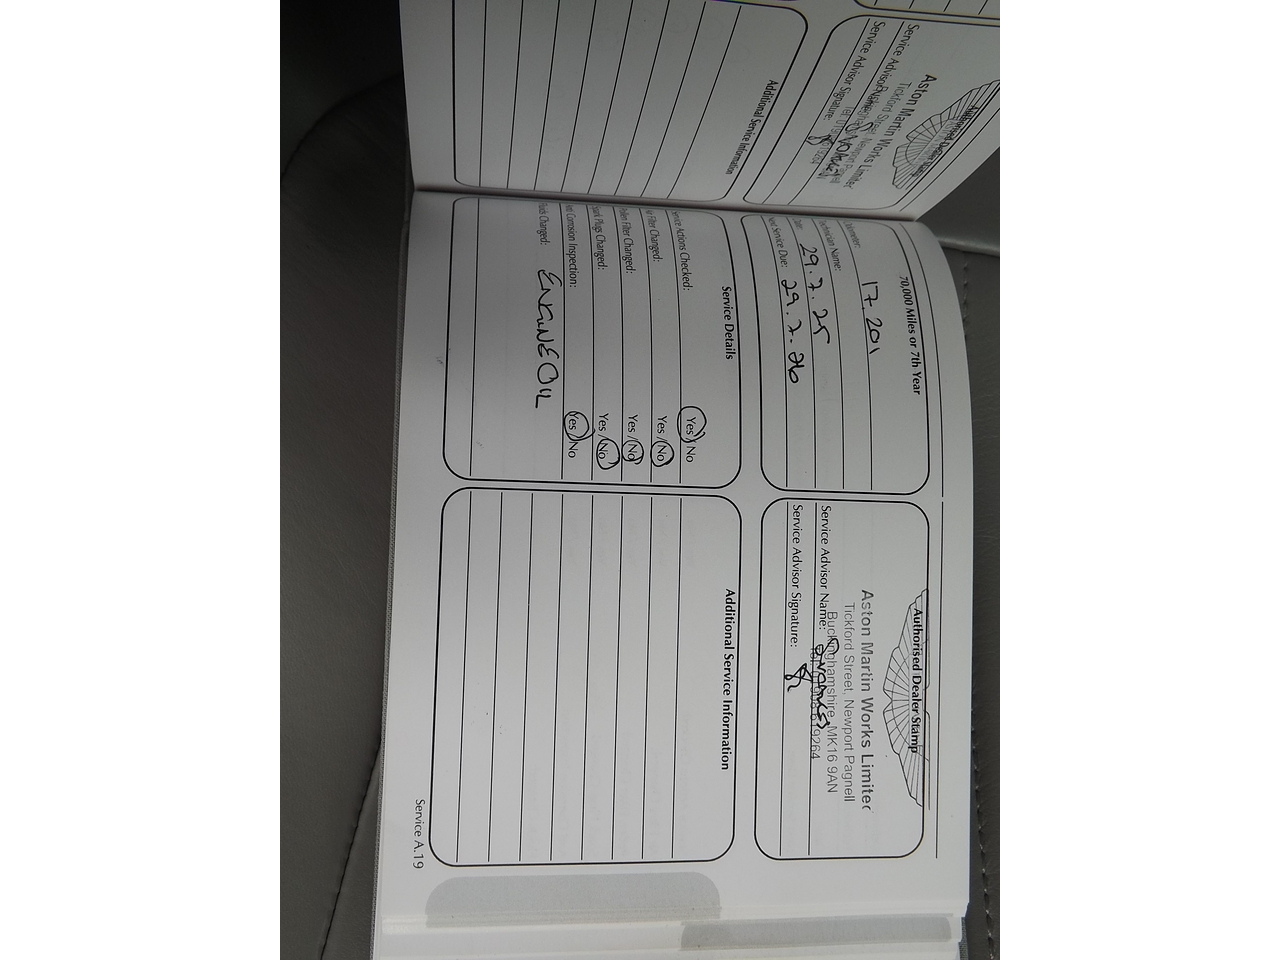 Authorised Dealer Stamp
Aston Martin Works Limited
Tickford Street, Newport Pagnell
Service Advisor Name:
Service Advisor Signature:
Additional Service Information
70,000 Miles or 7th Year
Odometer: 17.201
Technician Name:
Date: 29.7.25
Next Service Due: 29.7.26
Authorised Dealer Stamp
Aston Martin Works Limited
Tickford Street, Newport Pagnell
Buckinghamshire, MK16 9AN
Service Advisor Name:
Service Advisor Signature:
Service Details
Service Actions Checked: Yes / No
Air Filter Changed: Yes / No
Pollen Filter Changed: Yes / No
Spark Plugs Changed: Yes / No
Corrosion Inspection: Yes / No
Fluids Changed: ENGINE OIL
Additional Service Information
Service A.19